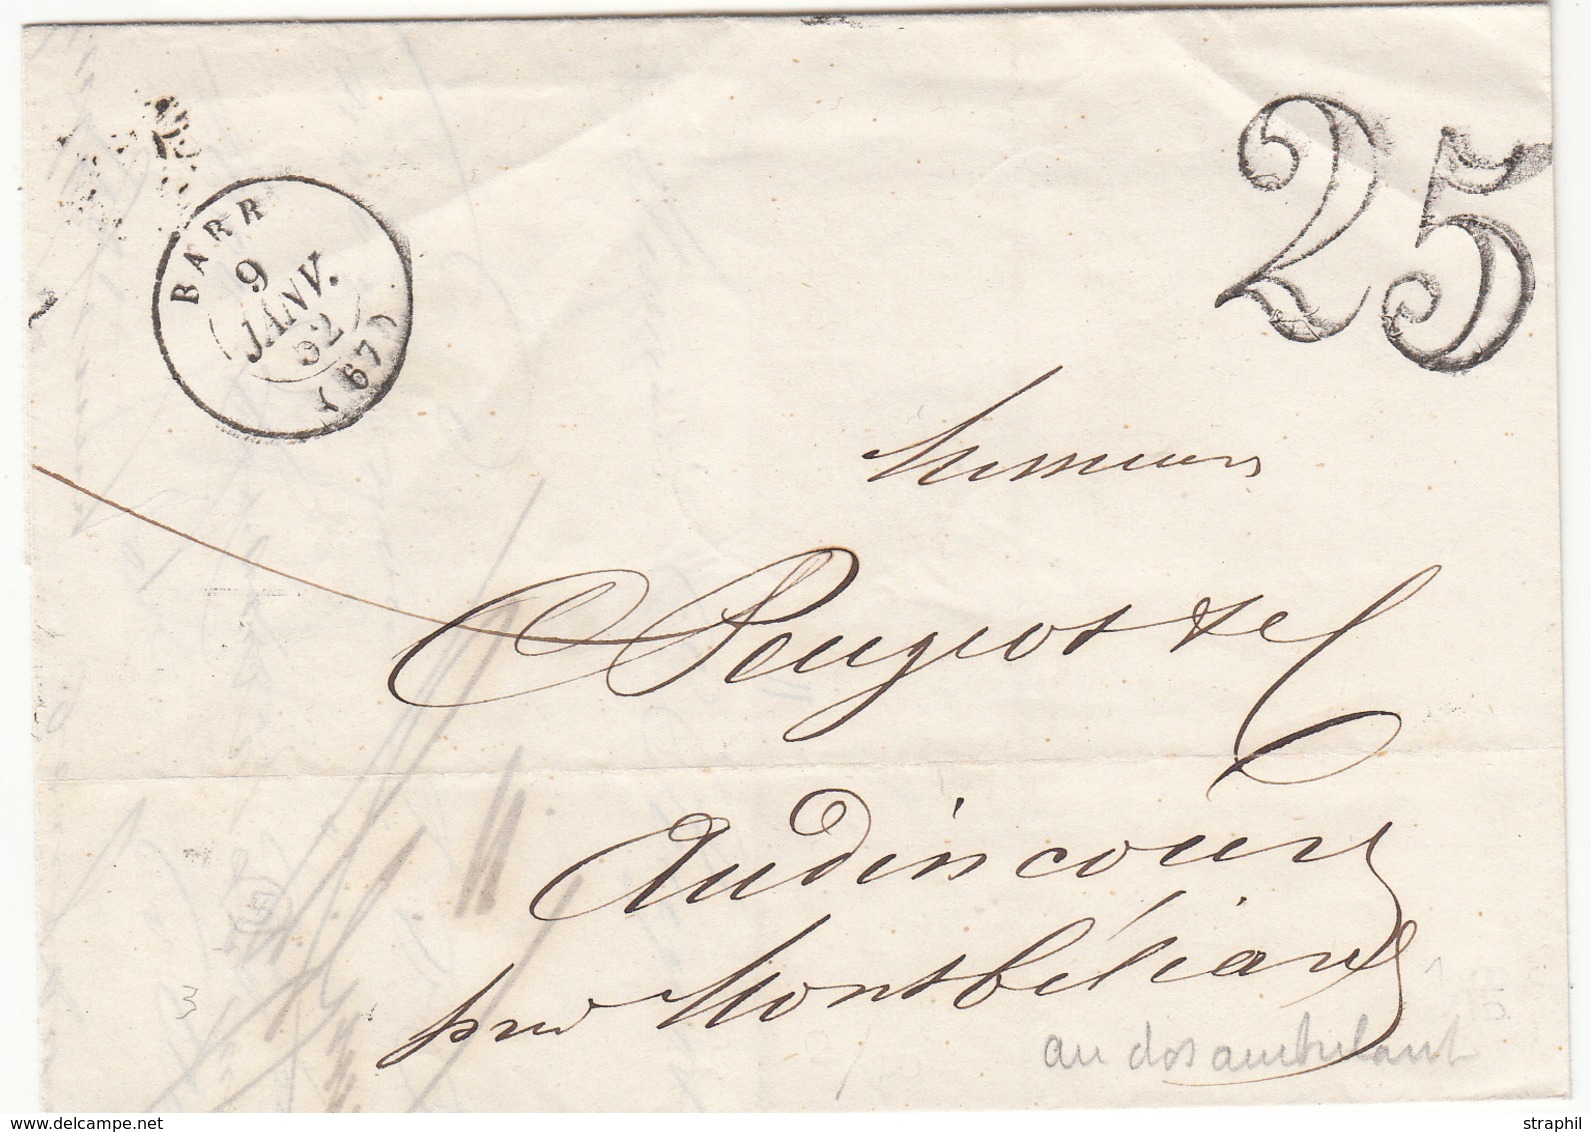 25
BARR
9
JANV.
52
(67)
Messieurs
Peugeot & Cie
Audincourt
près Montbéliard
3
15
au dos ambulant
www.delcampe.net
straphil